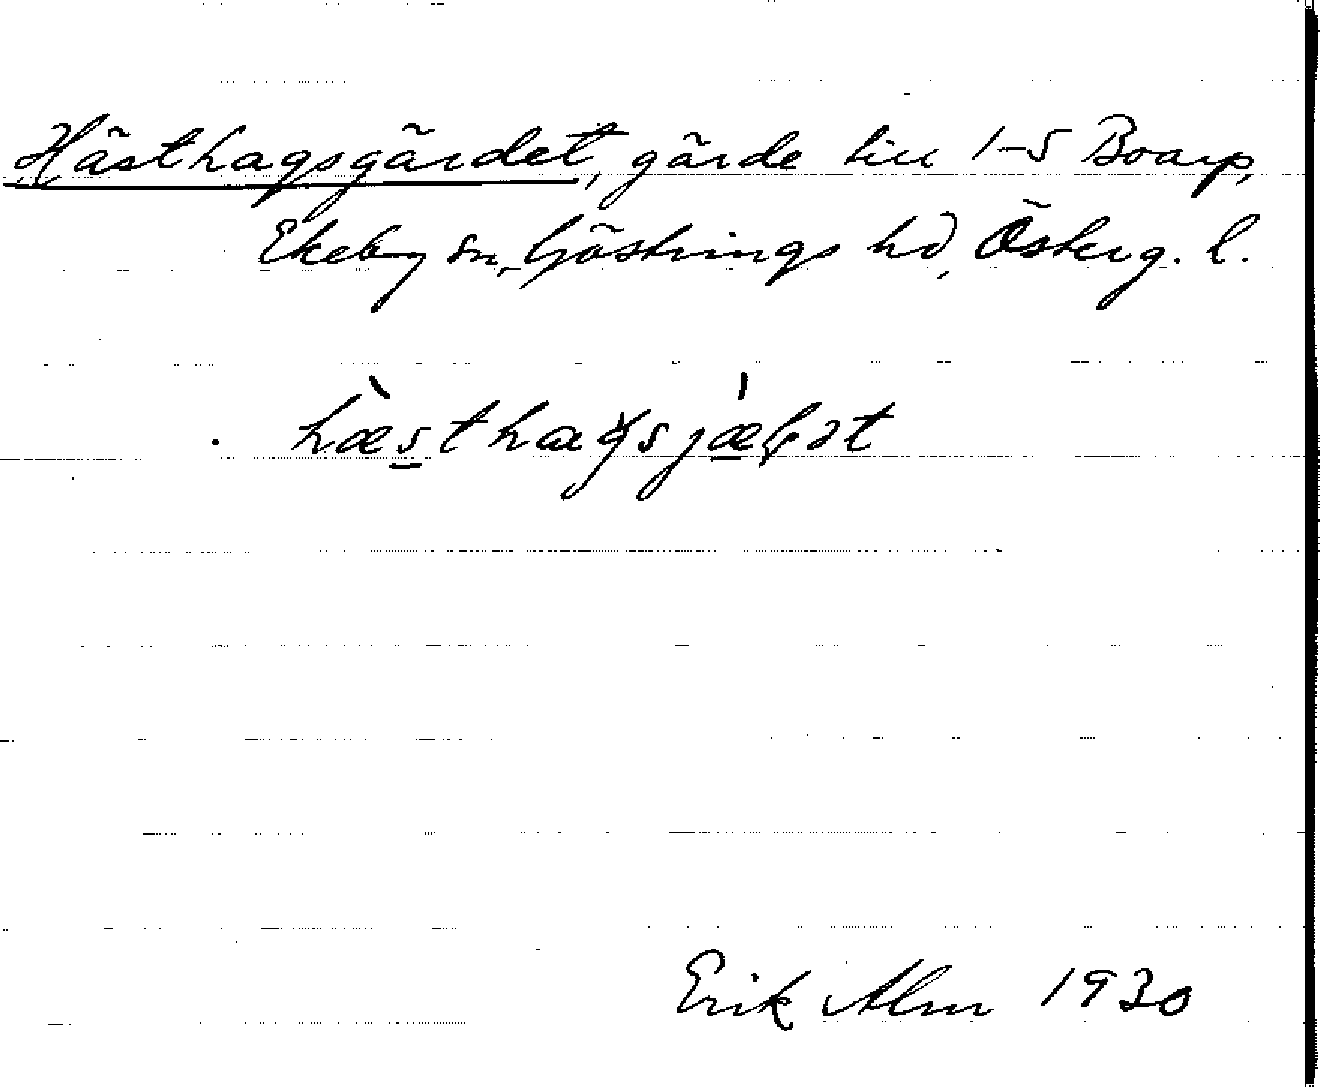 Hästhagsgärdet, gärde till 1-5 Boarp,
Ekeby sn, Göstrings hd, Österg. l.
Erik Alm 1930